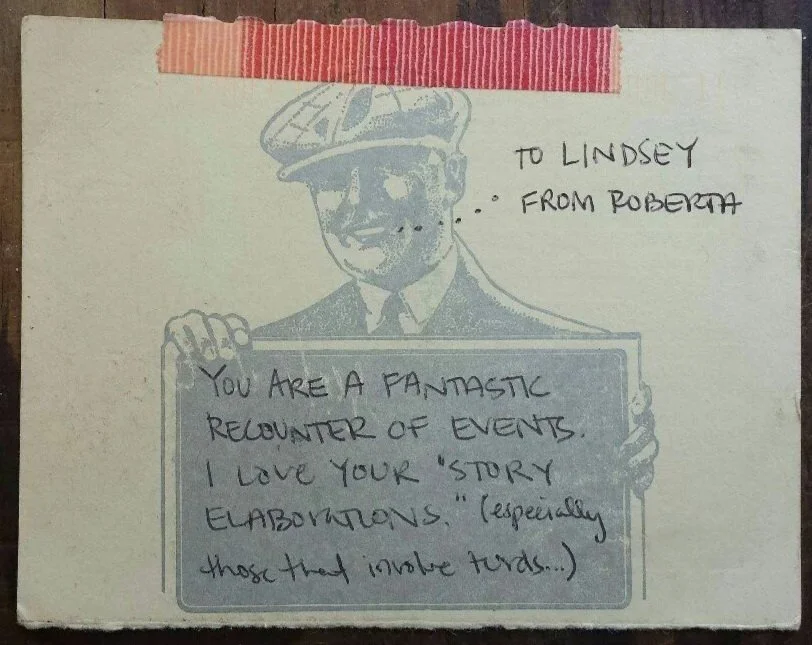 TO LINDSEY
FROM ROBERTA
YOU ARE A FANTASTIC
RECOUNTER OF EVENTS.
I LOVE YOUR "STORY
ELABORATIONS." (especially
those that involve turds...)